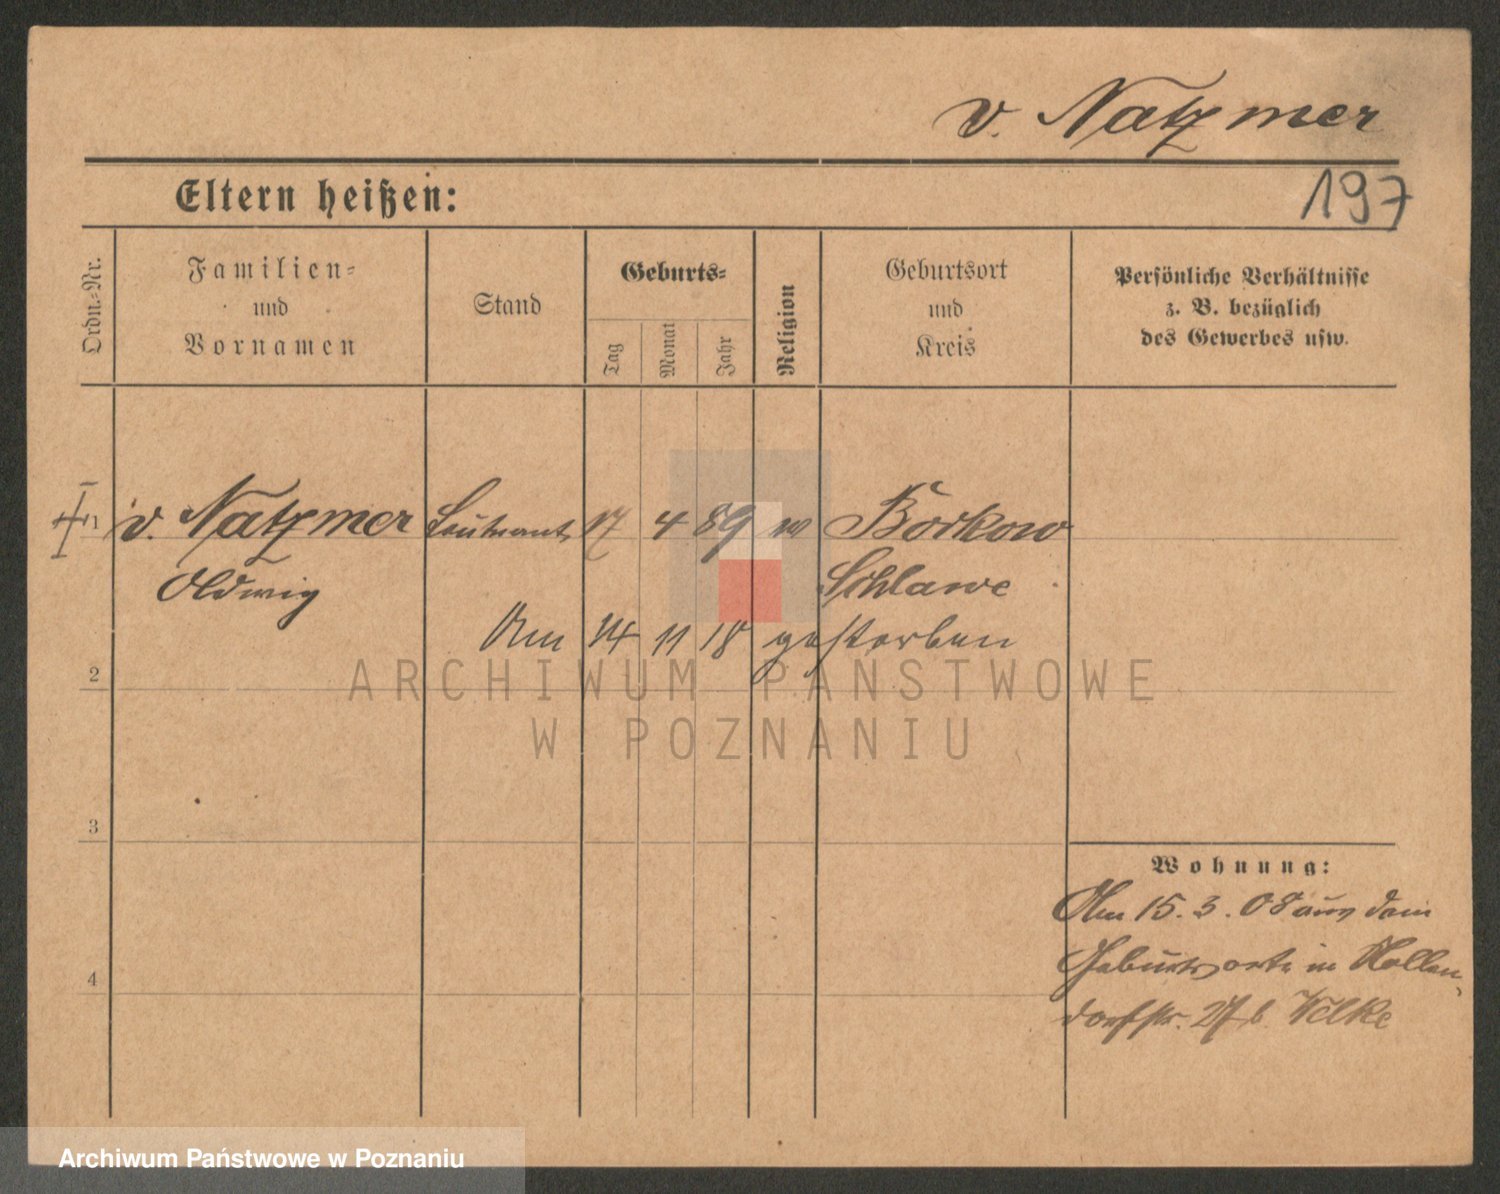 v. Natzmer
Eltern heißen:
197
Ordn.-Nr.
Familien-
und
Vornamen
Stand
Geburts-
Tag
Monat
Jahr
Religion
Geburtsort
und
Kreis
Persönliche Verhältnisse
z. B. bezüglich
des Gewerbes usw.
1 v. Natzmer Leutnant 17 4 89 Borkow
Oldwig Schlawe
Am 14 11 18 gestorben
2
ARCHIWUM PAŃSTWOWE
W POZNANIU
3
4
Wohnung:
Am 15. 3. 08 aus dem
Geburtsorte in Hollen-
dorfstr. 27 b. Wilke
Archiwum Państwowe w Poznaniu